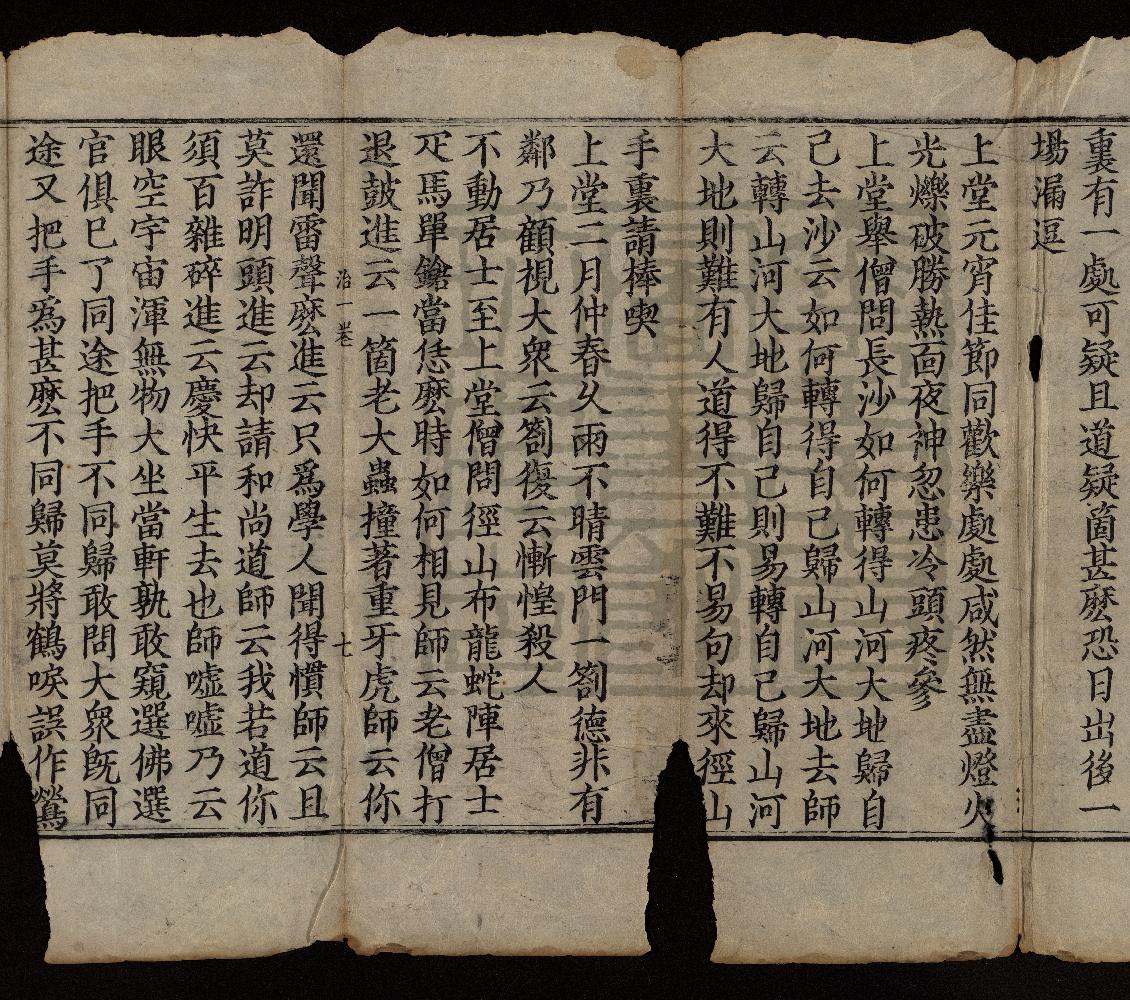 裏有一處可疑且道疑箇甚麽恐日出後一
場漏逗
上堂元宵佳節同歡樂處處咸然無盡燈火
光爍破勝熱面夜神忽患冷頭疼參
上堂舉僧問長沙如何轉得山河大地歸自
己去沙云如何轉得自己歸山河大地去師
云轉山河大地歸自己則易轉自己歸山河
大地則難有人道得不難不易句却來徑山
手裏請棒喫
上堂二月仲春久雨不晴雲門一劄德非有
鄰乃顧視大衆云劄復云慚惶殺人
不動居士至上堂僧問徑山布龍蛇陣居士
疋馬單鎗當恁麽時如何相見師云老僧打
退鼓進云一箇老大蟲撞著重牙虎師云你
沿一卷 七
還聞雷聲麽進云只爲學人聞得慣師云且
莫詐明頭進云却請和尚道師云我若道你
須百雜碎進云慶快平生去也師噓噓乃云
眼空宇宙渾無物大坐當軒孰敢窺選佛選
官俱已了同途把手不同歸敢問大衆旣同
途又把手爲甚麽不同歸莫將鶴唳誤作鶯